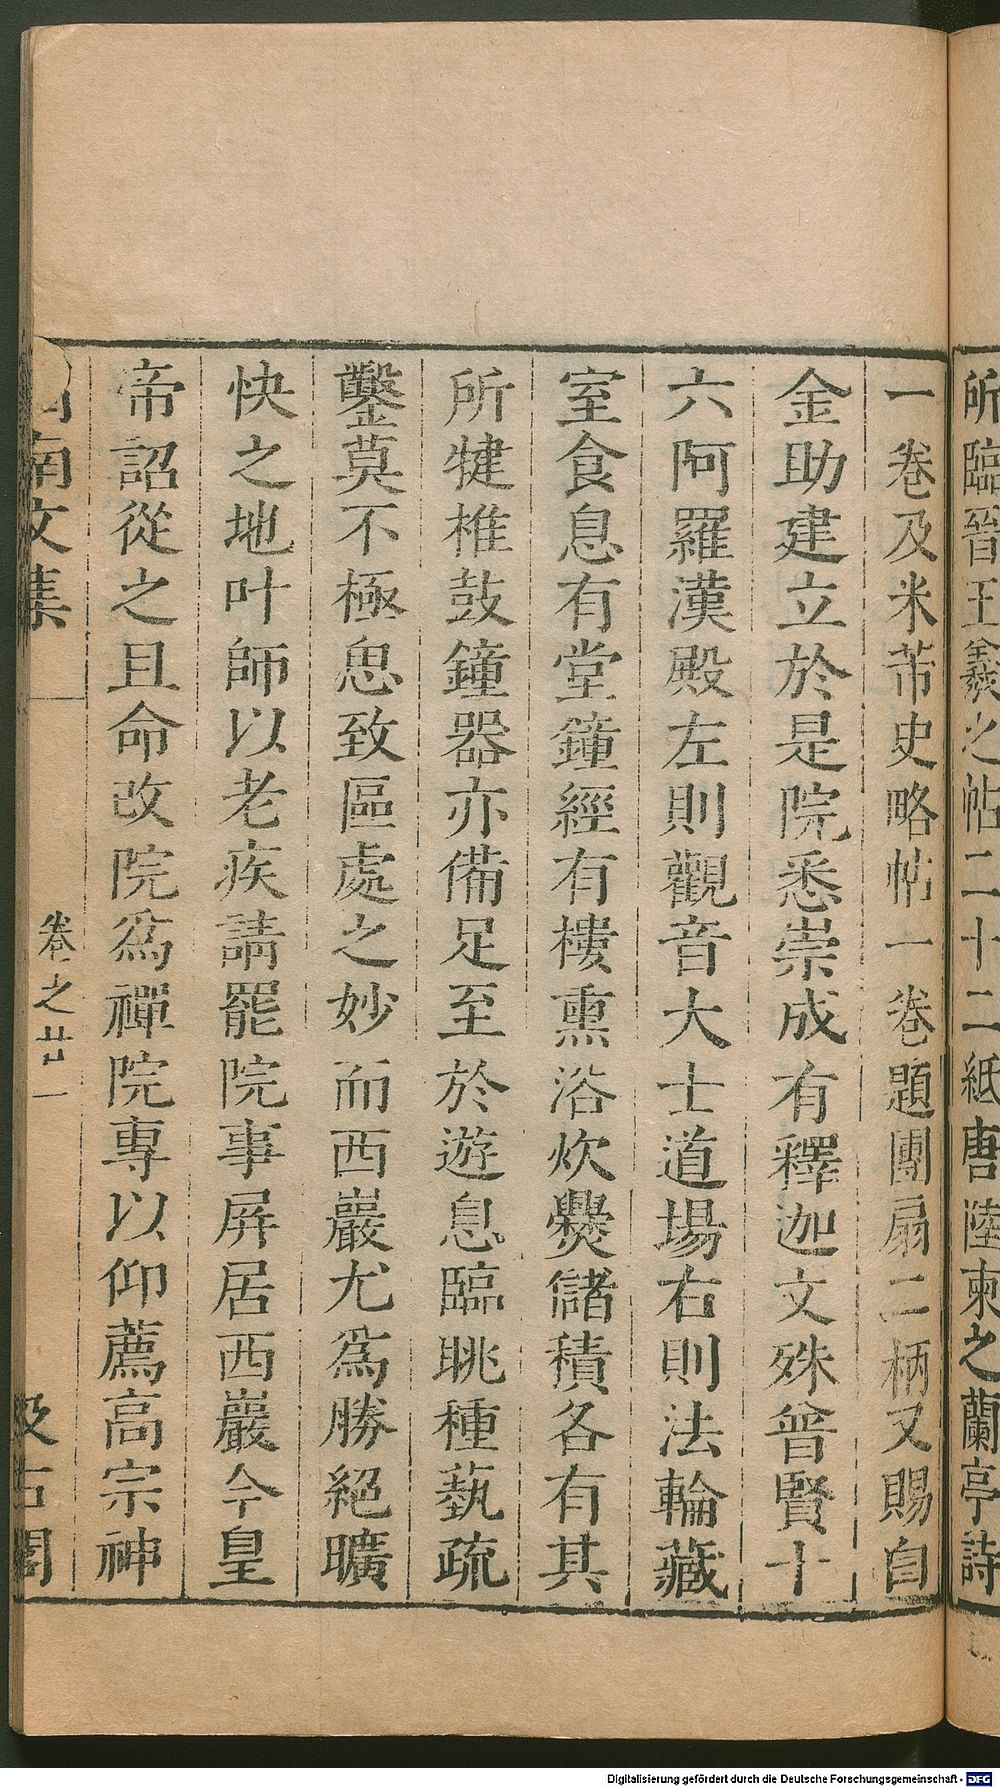 所臨晉王羲之帖二十二紙唐陸柬之蘭亭詩
一卷及米芾史略帖一卷題團扇二柄又賜白
金助建立於是院悉崇成有釋迦文殊普賢十
六阿羅漢殿左則觀音大士道場右則法輪藏
室食息有堂鐘經有樓熏浴炊爨儲積各有其
所犍椎鼓鐘器亦備足至於遊息臨眺種藝疏
鑿莫不極思致區處之妙而西巖尤爲勝絕曠
快之地叶師以老疾請罷院事屏居西巖今皇
帝詔從之且命改院爲禪院專以仰薦高宗神
南文集 卷之廿一 汲古閣
Digitalisierung gefördert durch die Deutsche Forschungsgemeinschaft - DFG